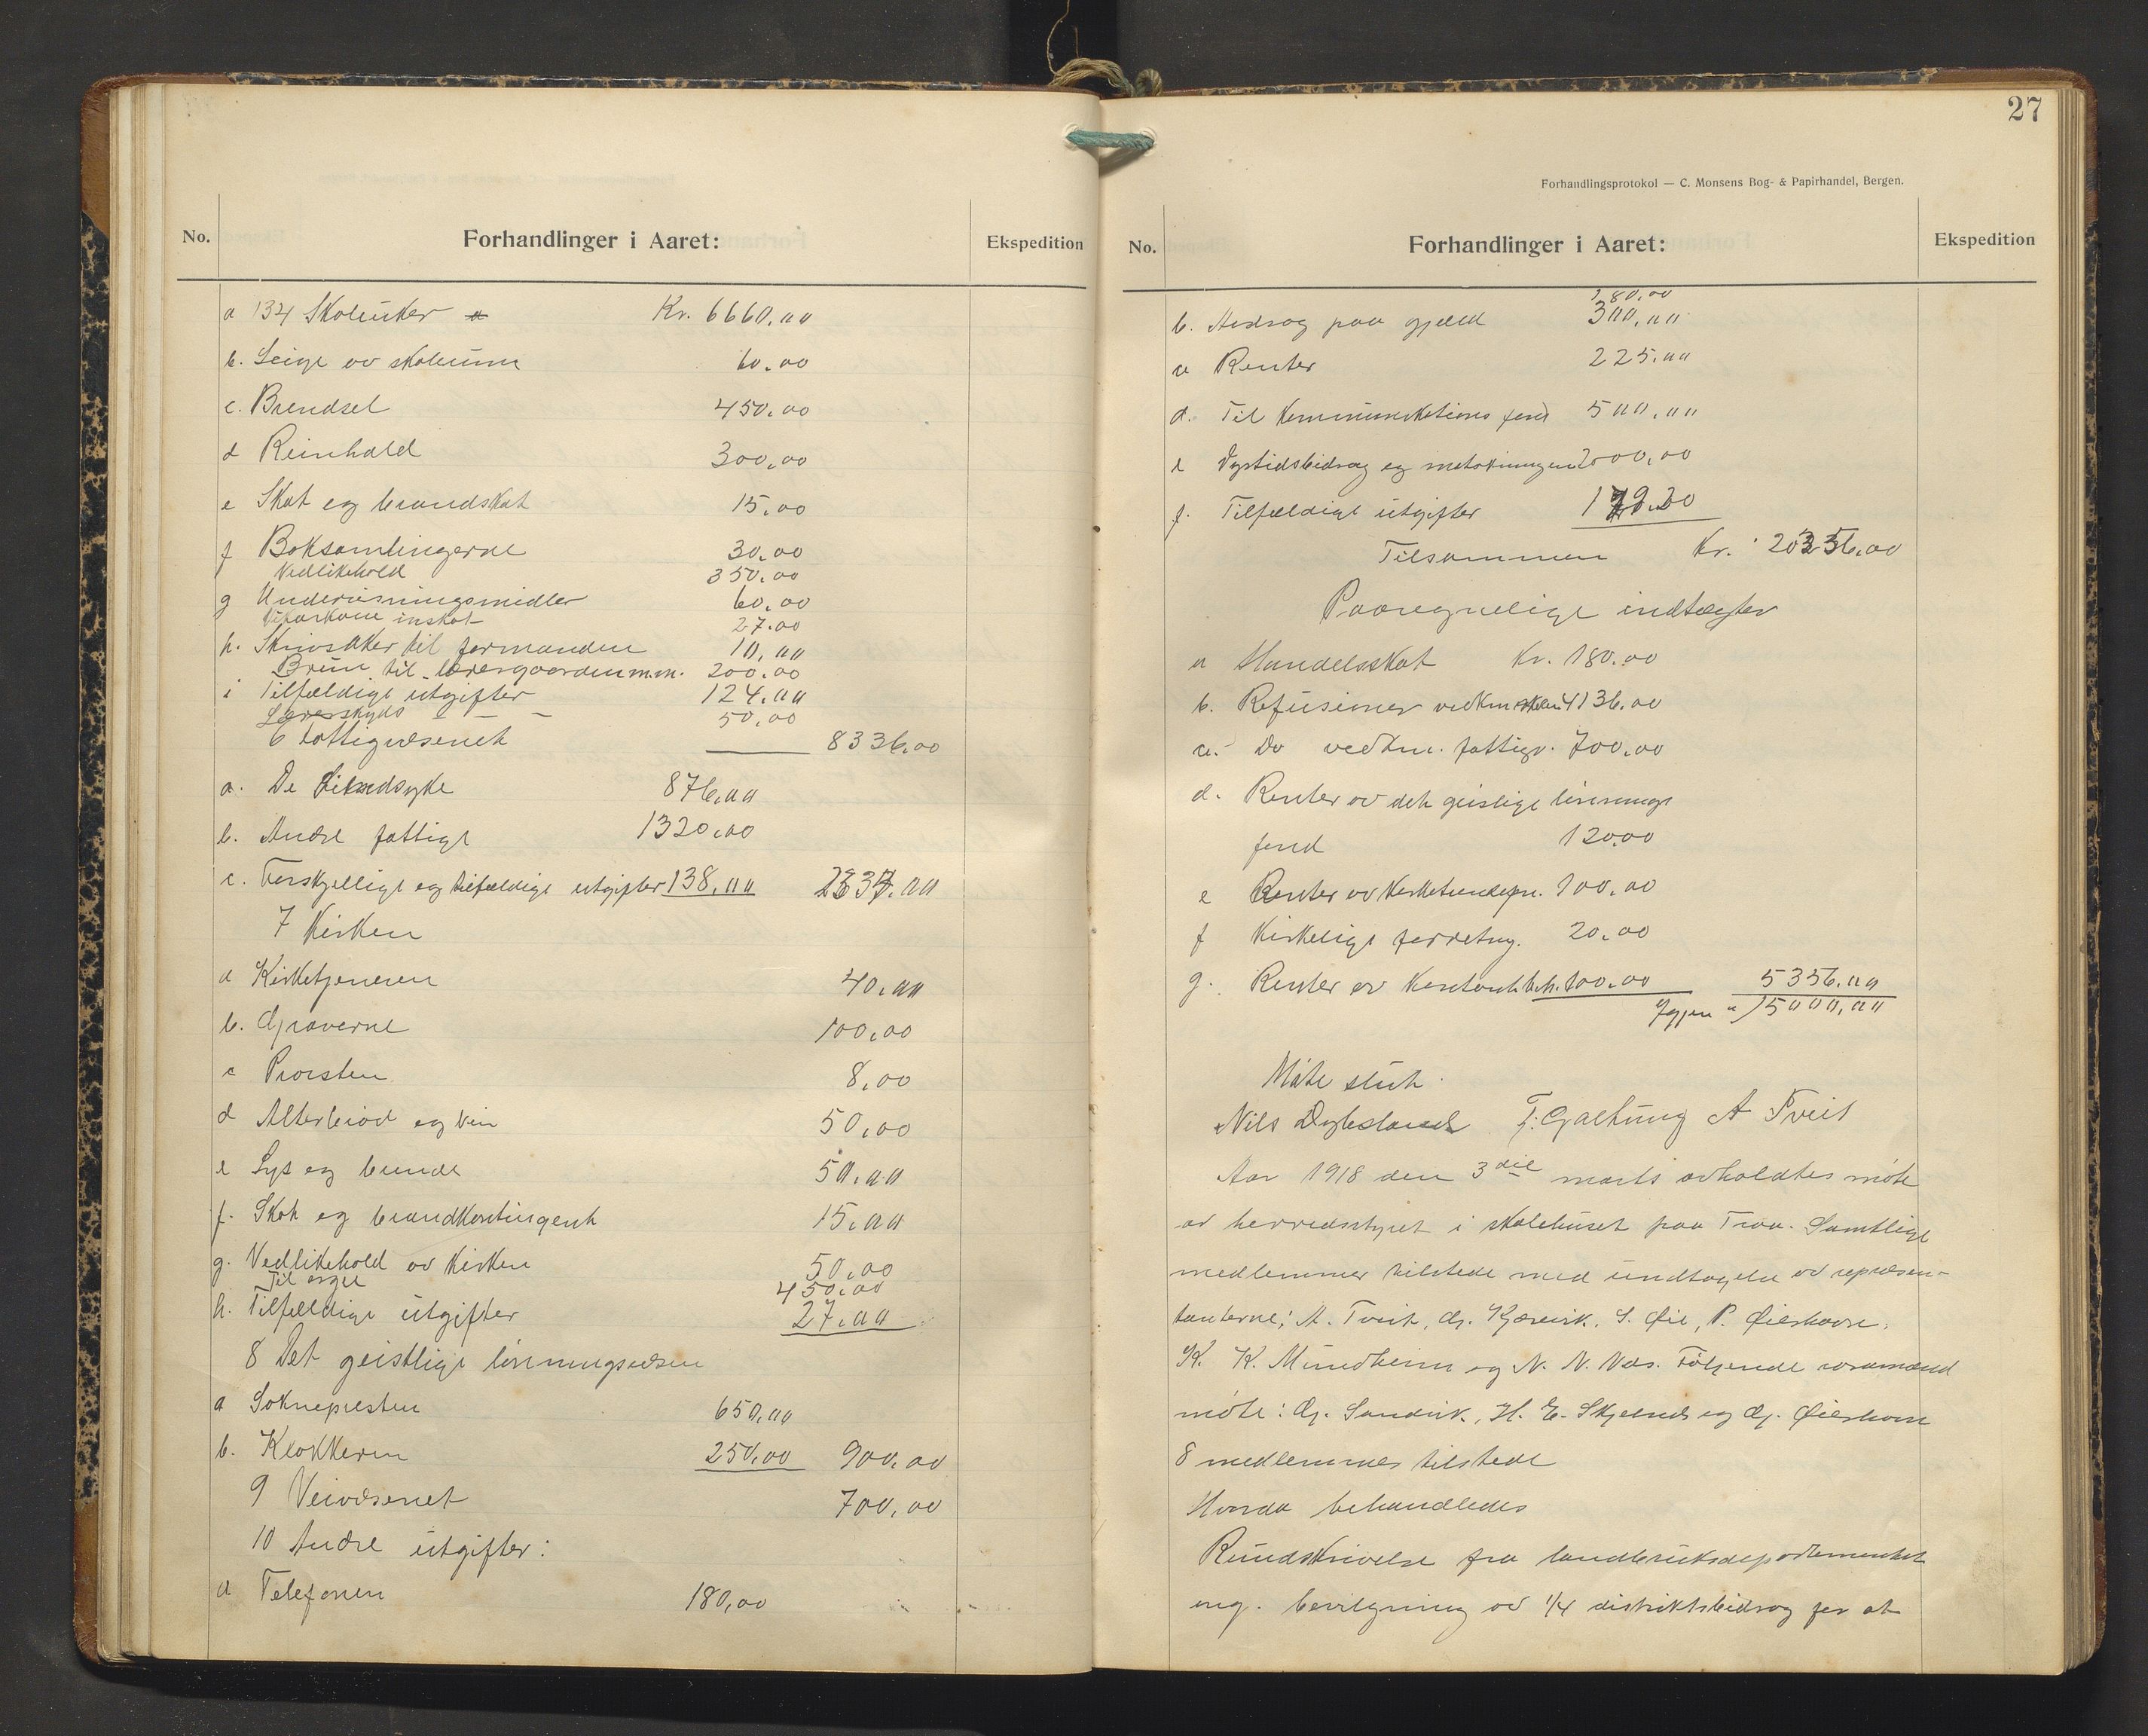 No.
Forhandlinger i Aaret:
Ekspedition
a 134 Skoleuker Kr. 6660,00
b. Leige av skolerum 60.00
c. Brendsel 450,00
d Reinhold 300,00
e Skat og brandskat 15,00
f Boksamlingerne 30,00
Vedlikehold 350,00
g Undervisningsmidler 60,00
inskot 27.00
h. Skrivsaker til formanden 10,00
til lærergaarden m.m. 200.00
i Tilfældige utgifter 124,00
Læreskyds 50,00
6 Fattigvæsenet 8336,00
a. De sindsyke 876,00
b. Andre fattige 1320,00
c. Forskjellige og tilfældige utgifter 138,00
7 Kirken
a Kirketjeneren 40,00
b. Graverne 100,00
c Provsten 8,00
d Alterbrød og vin 50,00
e Lys og brende 50,00
f. Skat og brandkontingent 15,00
g. Vedlikehold av kirken 50,00
Til orgel 450,00
h. Tilfældige utgifter 27,00
8 Det geistlige lønningsvæsen
a Soknepresten 650,00
b. Klokkeren 250,00 900,00
9 Veivæsenet 700,00
10 Andre utgifter:
a Telefonen 180,00
27
Forhandlingsprotokol — C. Monsens Bog- & Papirhandel, Bergen.
No.
Forhandlinger i Aaret:
Ekspedition
180,00
b. Avdrag paa gjæld 300,00
c Renter 225,00
d. Til kommunikations fond 500,00
e Dyrtidsbidrag og 2000,00
f. Tilfældige utgifter
Tilsammen Kr. 20356,00
Paaregnelige indtægter
a Handelsskat Kr. 180.00
b. Refusioner vedkm skolen 4136,00
c. Do vedkm. fattigv. 700,00
d. Renter av det geislige lønnings
fond 120,00
e Renter av 100,00
f Kirkelige forretng. 20,00
g. Renter av kontantbeh. 100,00 5356,00
Igjen 15000,00
Møte slut.
Nils Dybsland T. Galtung A Tveit
Aar 1918 den 3die marts avholdtes møte
av herredsstyret i skolehuset paa Traa. Samtlige
medlemmer tilstede med undtagelse av repræsen-
tanterne; A. Tveit, G. Kjærvik, S. Øie, P. Øierhavn,
K. K. Mundheim og N. N. Vas. Følgende varamænd
møte: G. Sandvik, H. E. Skjelnes og G. Øierhavn
8 medlemmer tilstede
Hvorda behandledes
Rundskrivelse fra landbruksdepartementet
ang. bevilgning av 1/4 distriktsbidrag for at